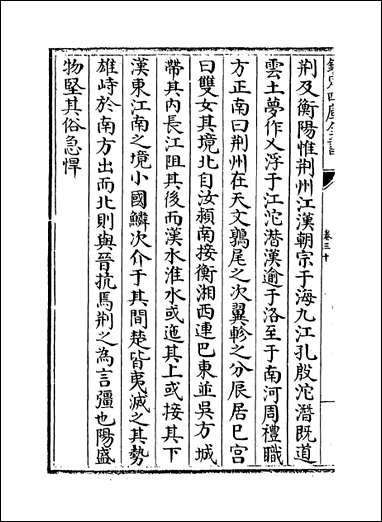 欽定四庫全書
卷三十
荆及衡陽惟荆州江漢朝宗于海九江孔殷沱潛既道
雲土夢作乂浮于江沱潛漢逾于洛至于南河周禮職
方正南曰荆州在天文鶉尾之次翼軫之分辰居巳宮
曰雙女其境北自汝潁南接衡湘西連巴東並吳方城
帶其内長江阻其後而漢水淮水或迤其上或接其下
漢東江南之境小國鱗次介于其間楚皆夷滅之其勢
雄峙於南方出而北則與晉抗焉荆之為言彊也陽盛
物堅其俗急悍